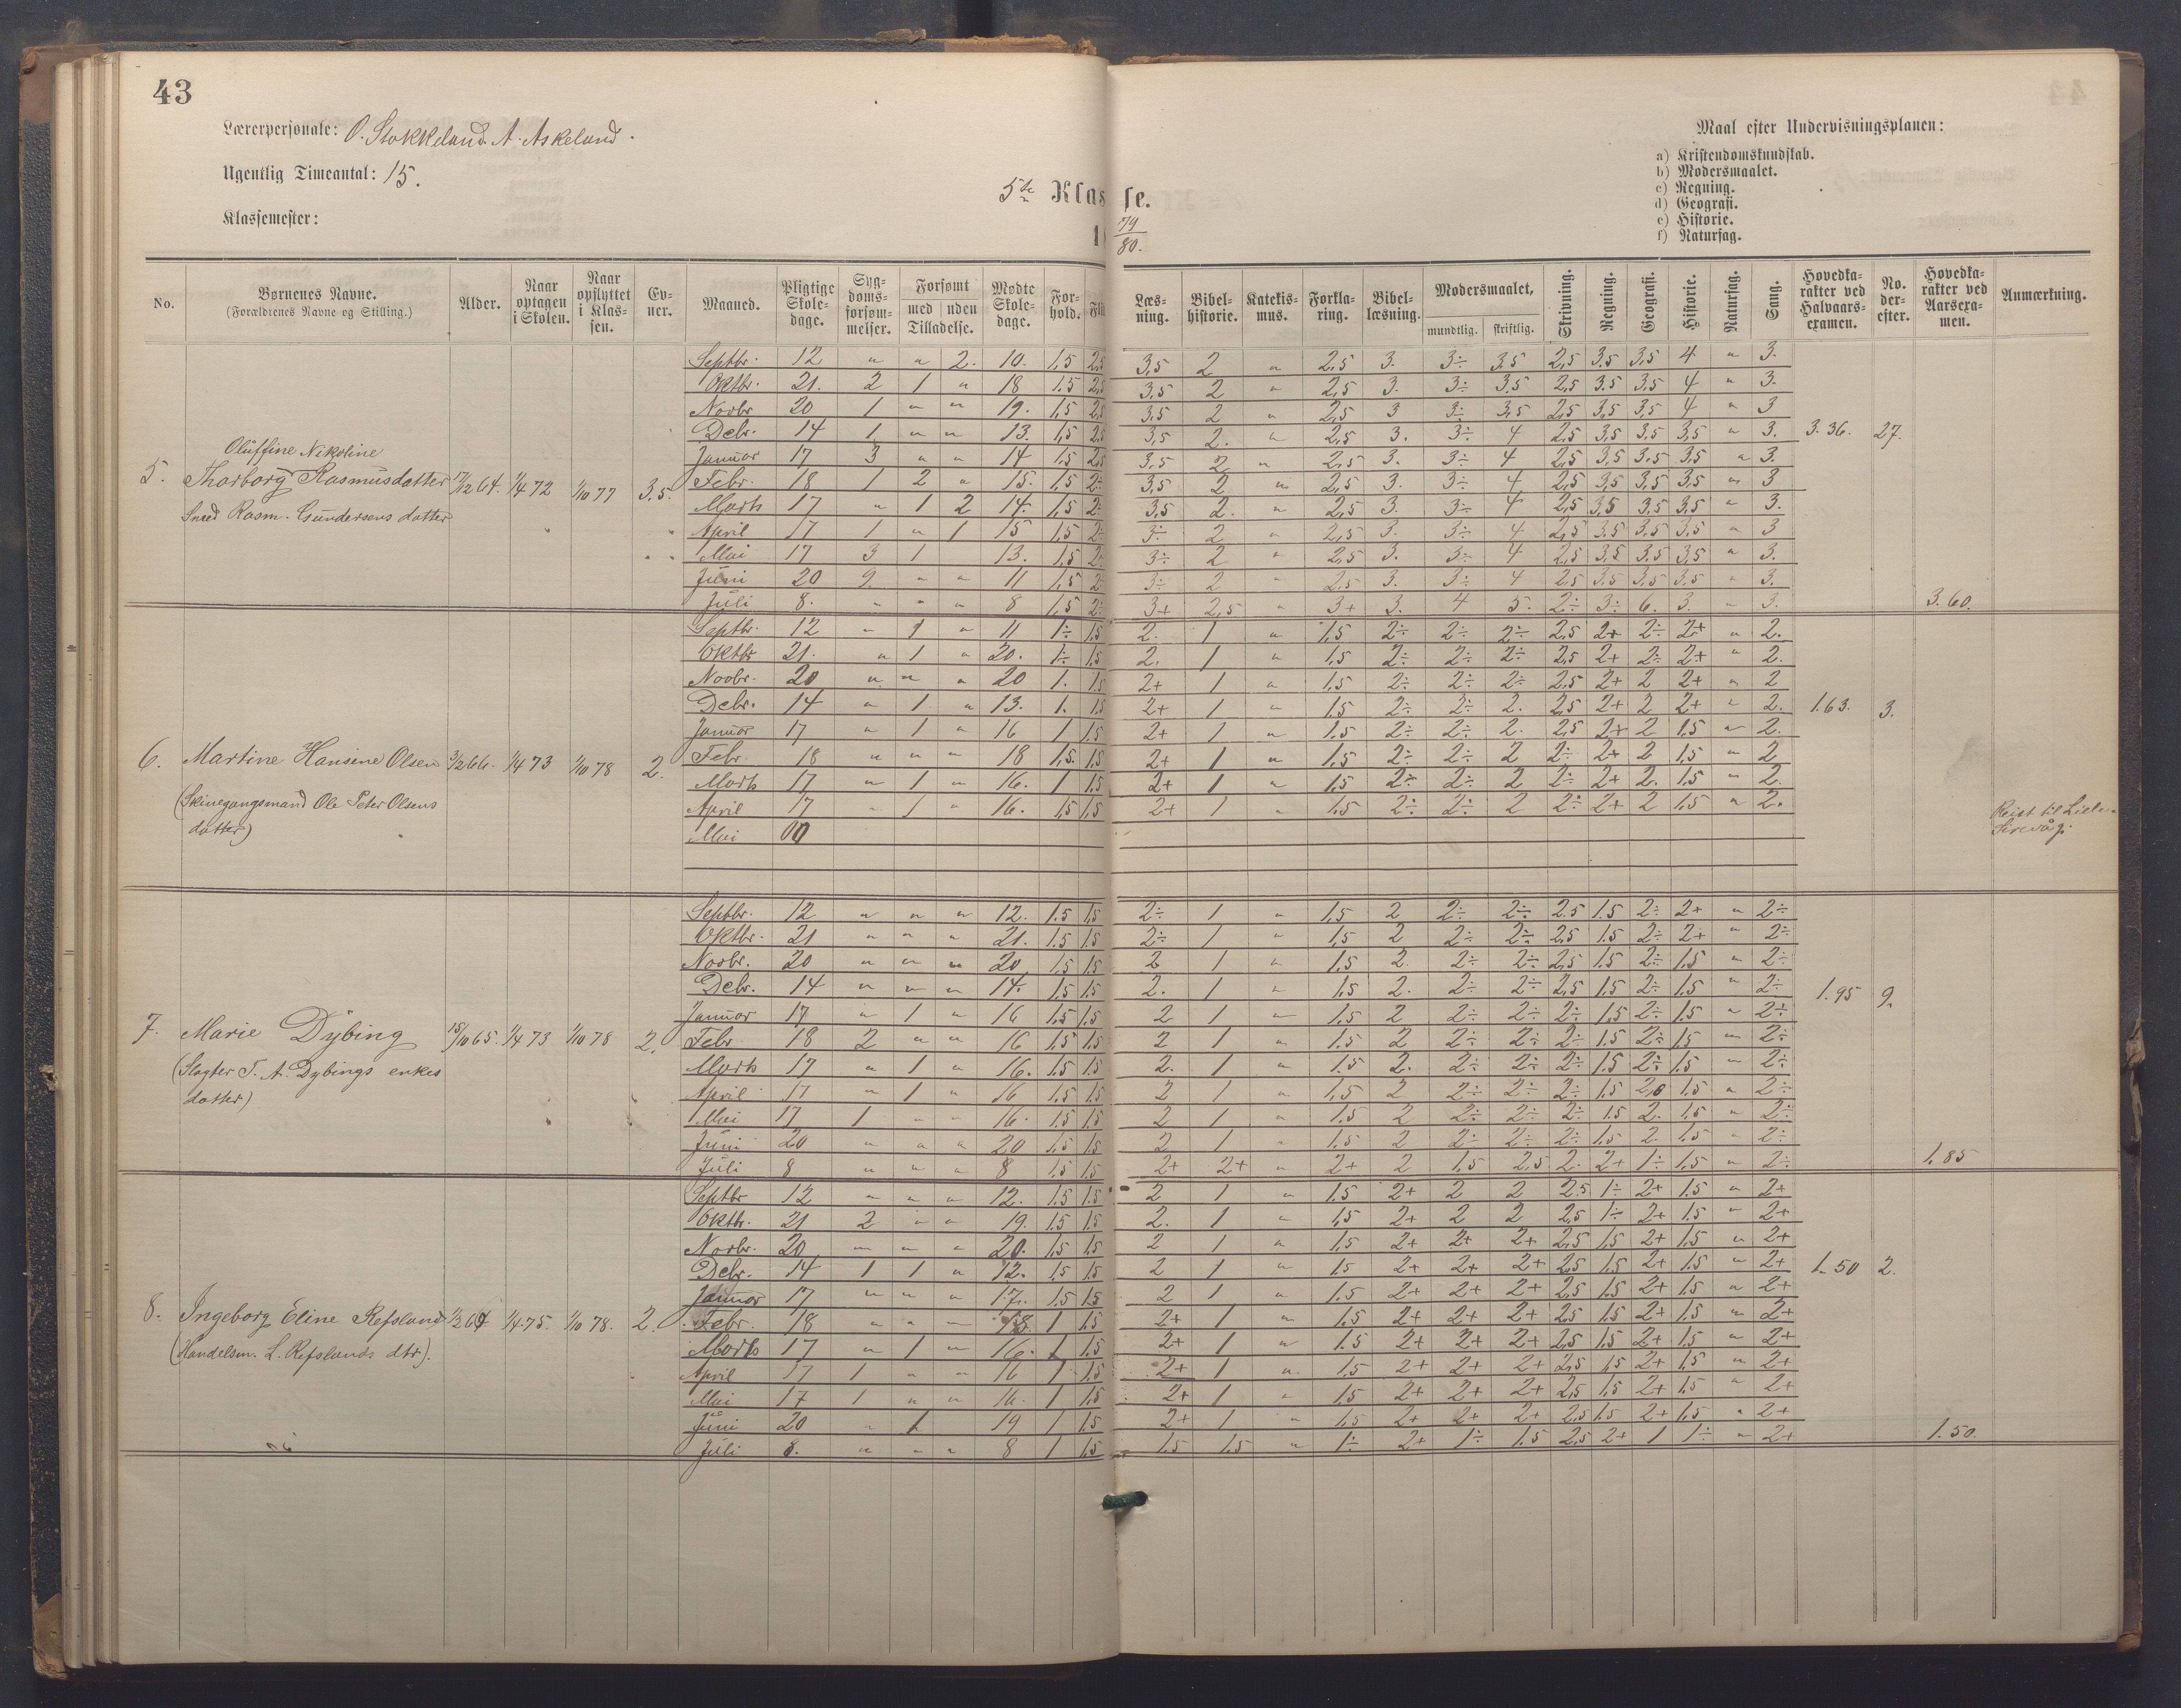 43
Lærerpersonale: O. Stokkeland. A. Askeland.
Ugentlig Timeantal: 15.
Klassemester:
5te Klasse.
79
80.
Maal efter Undervisningsplanen:
a) Kristendomskundskab.
b) Modersmaalet.
c) Regning.
d) Geografi.
e) Historie.
f) Naturfag.
No. | Børnenes Navne. (Forældrenes Navne og Stilling.) | Alder. | Naar optagen i Skolen. | Naar opflyttet i Klassen. | Evner. | Maaned. | Pligtige Skoledage. | Sygdomsforsømmelser. | Forsømt med uden Tilladelse. | Mødte Skoledage. | Forhold. | Fli | Læsning. | Bibelhistorie. | Katekismus. | Forklaring. | Bibellæsning. | Modersmaalet, mundtlig. skriftlig. | Skrivning. | Regning. | Geografi. | Historie. | Naturfag. | Sang. | Hovedkarakter ved Halvaarsexamen. | No. derefter. | Hovedkarakter ved Aarsexamen. | Anmærkning.
Septbr. 12 " " 2. 10. 1,5 2,5 3,5 2 " 2,5 3. 3÷ 3,5 2,5 3,5 3,5 4 " 3.
Oktbr. 21. 2 1 " 18 1.5 2,5 3,5 2 " 2,5 3. 3÷ 3,5 2,5 3.5 3,5 4 " 3.
Novbr 20 1 " " 19. 1,5 2,5 3,5 2 " 2,5 3 3÷ 3,5 2,5 3,5 3,5 4 " 3
Debr. 14 1 " " 13. 1,5 2,5 3,5 2. " 2,5 3. 3÷ 4 2,5 3,5 3,5 3,5 " 3. 3.36. 27.
Oluffine Nikoline
Januar 17 3 " " 14 1,5 2,5 3,5 2 " 2,5 3. 3÷ 4 2,5 3,5 3,5 3,5 " 3
5. Thorborg Rasmusdatter 17/12 64. 1/4 72 1/10 77 3.5. Febr. 18 1 2 " 15. 1,5 2÷ 3,5 2 " 2,5 3. 3÷ 4 2,5 3,5 3,5 3,5 " 3
Smed Rasm. Gundersens datter Marts 17 " 1 2 14. 1,5 2÷ 3,5 2. " 2,5 3. 3÷ 4 2,5 3,5 3,5 3,5 " 3.
April 17 1 " 1 15 1,5 2÷ 3÷ 2 " 2,5 3. 3÷ 4 2,5 3.5 3,5 3,5 " 3
Mai 17 3 1 13. 1,5 2÷ 3÷ 2 " 2,5 3. 3÷ 4 2,5 3,5 3,5 3,5 " 3.
Juni 20 9 " " 11 1,5 2÷ 3÷ 2 " 2,5 3. 3÷ 4 2,5 3.5 3,5 3,5 " 3.
Juli 8. " " " 8 1,5 2÷ 3+ 2,5 " 3+ 3. 4 5. 2÷ 3÷ 6. 3. " 3. 3.60.
Septbr. 12 " 1 " 11 1÷ 1,5 2. 1 " 1,5 2÷ 2÷ 2÷ 2,5 2+ 2÷ 2+ " 2.
Oktbr 21. " 1 " 20. 1÷ 1,5 2. 1 " 1,5 2÷ 2÷ 2÷ 2,5 2+ 2÷ 2+ " 2.
Novbr. 20 " " " 20 1. 1,5 2+ 1 " 1,5 2÷ 2÷ 2÷ 2,5 2+ 2 2+ " 2
Debr. 14 " 1 " 13. 1. 1,5 2+ 1 " 1,5 2÷ 2÷ 2. 2,5 2+ 2 2+ " 2. 1.63. 3.
Januar 17 " 1 " 16 1 1,5 2+ 1 " 1,5 2÷ 2÷ 2. 2,5 2+ 2 1,5 " 2.
6. Martine Hansine Olsen 3/2 66. 1/4 73 1/10 78 2. Febr. 18 " " " 18 1,5. 1,5 2+ 1 " 1,5 2÷ 2÷ 2 2÷ 2+ 2 1,5 " 2
Marts 17 " 1 " 16. 1 1,5 2+ 1 " 1,5 2÷ 2÷ 2 2÷ 2+ 2. 1,5 " 2.
(Skinegangsmand Ole Peter Olsens April 17 " 1 " 16. 1,5 1,5 2+ 1 " 1,5 2÷ 2÷ 2 2÷ 2+ 2 1,5 " 2. Reist til
datter) Mai 00 Sirevåg.
Septbr. 12 " " " 12. 1.5 1,5 2÷ 1 " 1,5 2 2÷ 2÷ 2.5 1.5 2÷ 2+ " 2÷
Oktbr. 21 " " " 21. 1.5 1.5 2÷ 1 " 1,5 2 2÷ 2÷ 2,5 1.5 2÷ 2+ " 2÷
Novbr. 20 " " " 20 1,5 1.5 2 1 " 1,5 2. 2÷ 2÷ 2,5 1.5 2÷ 1,5 " 2÷
Debr. 14 " " " 14. 1,5 1,5 2. 1 " 1,5 2. 2÷ 2÷ 2,5 1.5 2÷ 1,5 " 2÷ 1.95 9.
Januar 17 " 1 " 16 1,5 1,5 2 1 " 1,5 2 2÷ 2÷ 2÷ 1,5 2÷ 1,5 " 2÷
7. Marie Dybing 15/10 65. 1/4 73 1/10 78 2. Febr 18 2 " " 16 1,5 1.5 2 1 " 1.5 2 2÷ 2÷ 2÷ 1.5 2÷ 1,5 " 2÷
(Slagter T. A. Dybings enkes Marts 17 " 1 " 16. 1.5 1.5 2. 1 " 1,5 2. 2÷ 2÷ 2÷ 1.5 2÷ 1.5 " 2÷
datter) April 17 " 1 " 16 1,5 1.5 2 1 " 1,5 2 2÷ 2÷ 2÷ 1.5 2,0 1,5 " 2÷
Mai 17 1 " " 16. 1.5 1.5 2 1 " 1,5 2 2÷ 2÷ 2÷ 1.5 2. 1.5 " 2÷
Juni 20 " " " 20 1,5 1.5 2 1 " 1,5 2 2÷ 2÷ 2÷ 1,5 2. 1.5 " 2÷
Juli 8 " " " 8 1,5 1.5 2+ 2+ " 2+ 2 1,5 2,5 2. 2+ 1÷ 1,5 " 2÷ 1.85
Septbr 12 " " " 12. 1.5 1.5 2 1 " 1.5 2+ 2 2 2.5 1÷ 2+ 1.5 " 2+
Oktbr. 21 2 " " 19. 1.5 1.5 2. 1 " 1,5 2+ 2 2 2,5 1÷ 2+ 1.5 " 2+
Novbr. 20 " " " 20. 1,5 1,5 2 1 " 1,5 2+ 2+ 2+ 2,5 1,5 2+ 1.5 " 2+
Debr. 14 1 1 " 12. 1.5 1.5 2 1 " 1.5 2+ 2+ 2+ 2,5 1.5 2+ 1.5 " 2+ 1.50 2.
Januar 17 " " " 17. 1.5 1.5 2 1 " 1.5 2+ 2+ 2+ 2,5 1,5 2+ 1,5 " 2+
8. Ingeborg Eline Refsland 1/4 75. 1/10 78. 2. Febr. 18 " " " 18. 1 1.5 2+ 1 " 1,5 2+ 2+ 2+ 2.5 1.5 2+ 1,5 " 2+
(Handelsm. L. Refslands dtr). Marts 17 " 1 " 16. 1 1.5 2+ 1 " 1.5 2+ 2+ 2+ 2,5 1.5 2+ 1,5 " 2+
April 17 1 " " 16 1 1,5 2+ 1 " 1,5 2+ 2+ 2+ 2,5 1,5 2+ 1,5 " 2+
Mai 17 1 " " 16. 1 1,5 2+ 1 " 1,5 2+ 2+ 2+ 2,5 1.5 2+ 1.5 " 2+
Juni 20 " 1 19 1 1.5 2+ 1 " 1,5 2+ 2+ 2+ 2.5 1.5 2+ 1,5 " 2+
Juli 8. " " " 8 1 1.5 1.5 1.5 " 1÷ 2+ 1÷ 1.5 2,5 2+ 1 1÷ " 2+ 1.50.